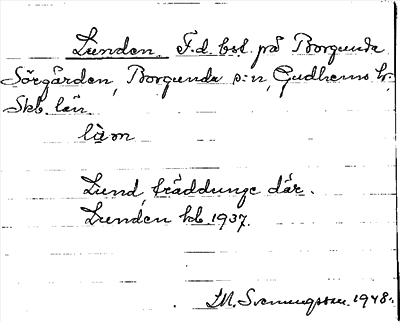 Lunden F.d. bst. på Borgunda
Sörgården, Borgunda s:n, Gudhems hd,
Skb. län.
Lund, träddunge där.
Lunden kb. 1937.
1948.